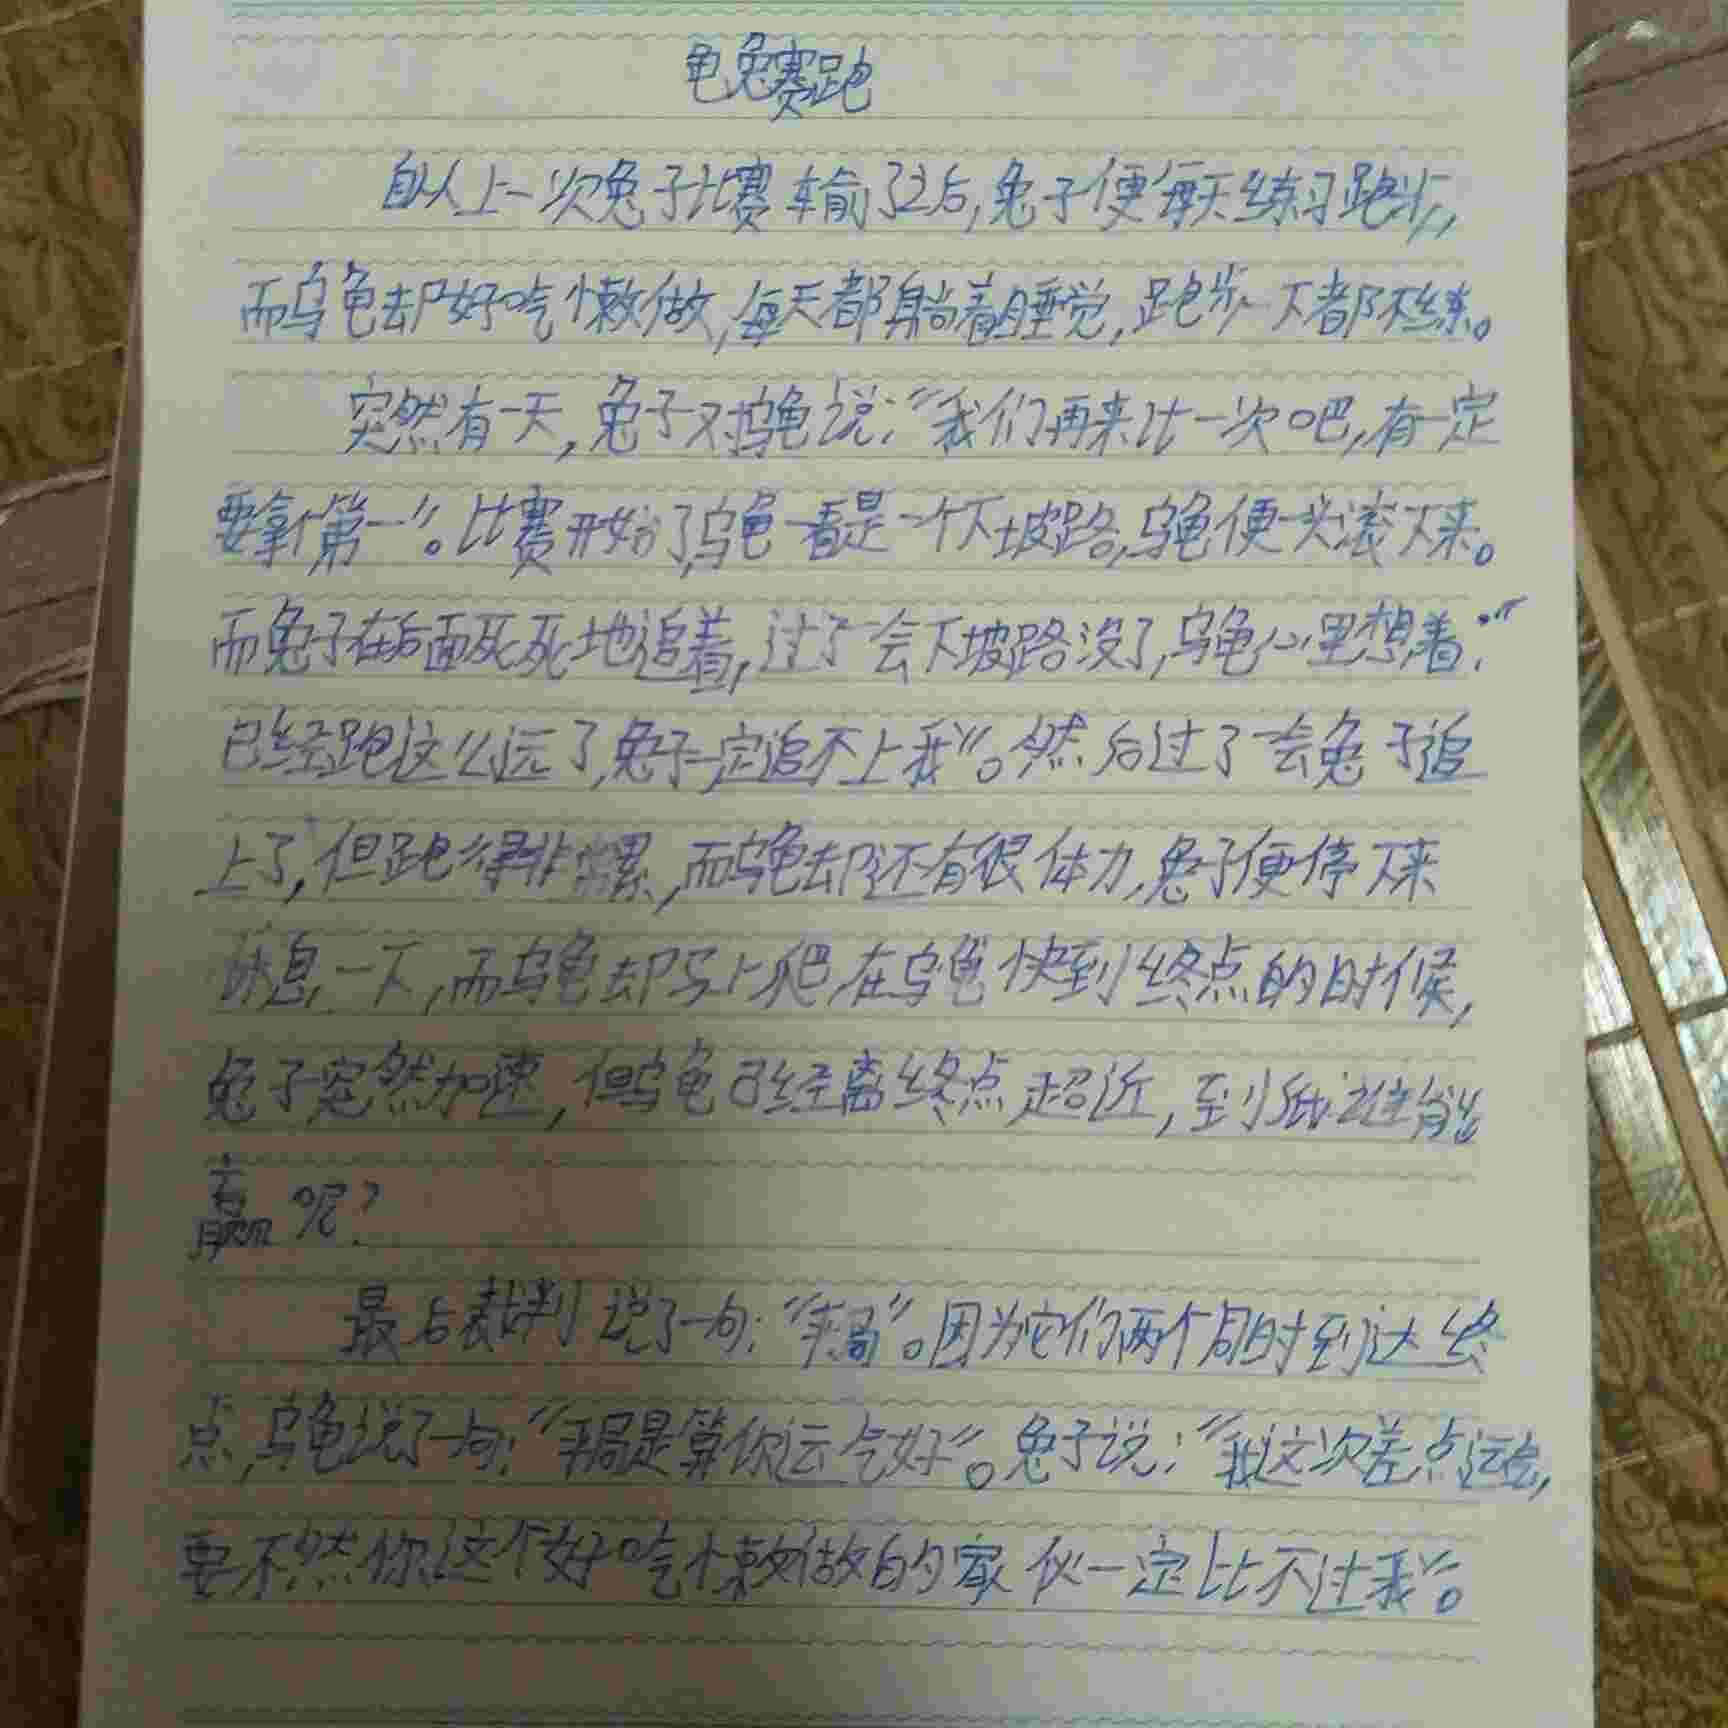 龟兔赛跑
自从上一次兔子比赛输了之后,兔子便每天练习跑步,
而乌龟却好吃懒做,每天都躺着睡觉,跑步一下都不练。
突然有一天,兔子对乌龟说:“我们再来比一次吧,有一定
要拿第一”。比赛开始了,乌龟一看是一个下坡路,乌龟便一头滚下来。
而兔子在后面死死地追着,过了一会下坡路没了,乌龟心里想着:“
已经跑这么远了,兔子一定追不上我”。然后过了一会兔子追
上了,但跑得非常累,而乌龟却还有很体力,兔子便停下来
休息一下,而乌龟却马上爬,在乌龟快到终点的时候,
兔子突然加速,但乌龟已经离终点超近,到底谁能
赢呢?
最后裁判说了一句:“平局”。因为它们两个同时到达终
点,乌龟说了一句:“平局是算你运气好”。兔子说:“我这次差点运气,
要不然你这个好吃懒做的家伙一定比不过我”。